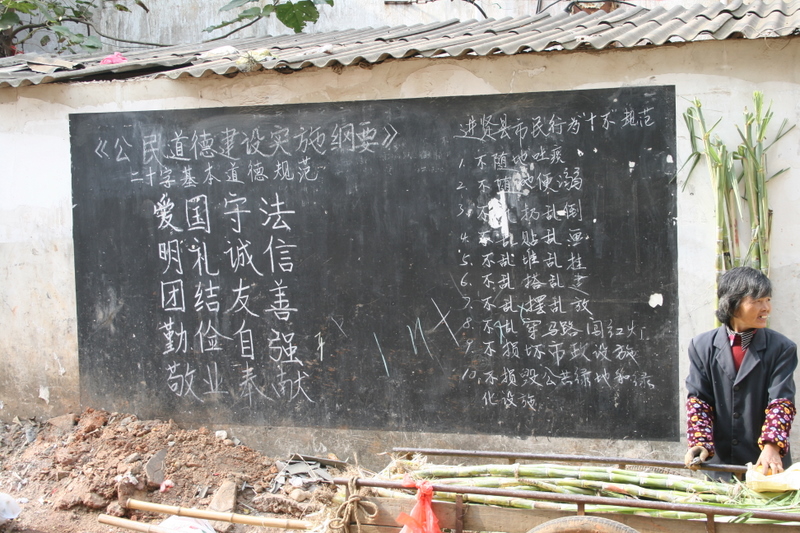 《公民道德建设实施纲要》
二十字基本道德规范
爱国守法
明礼诚信
团结友善
勤俭自强
敬业奉献
进贤县市民行为"十不"规范
1. 不随地吐痰
2. 不随地便溺
3. 不乱扔乱倒
4. 不乱贴乱画
5. 不乱堆乱挂
6. 不乱搭乱建
7. 不乱摆乱放
8. 不乱穿马路 闯红灯
9. 不损坏市政设施
10. 不损毁公共绿地和绿
化设施